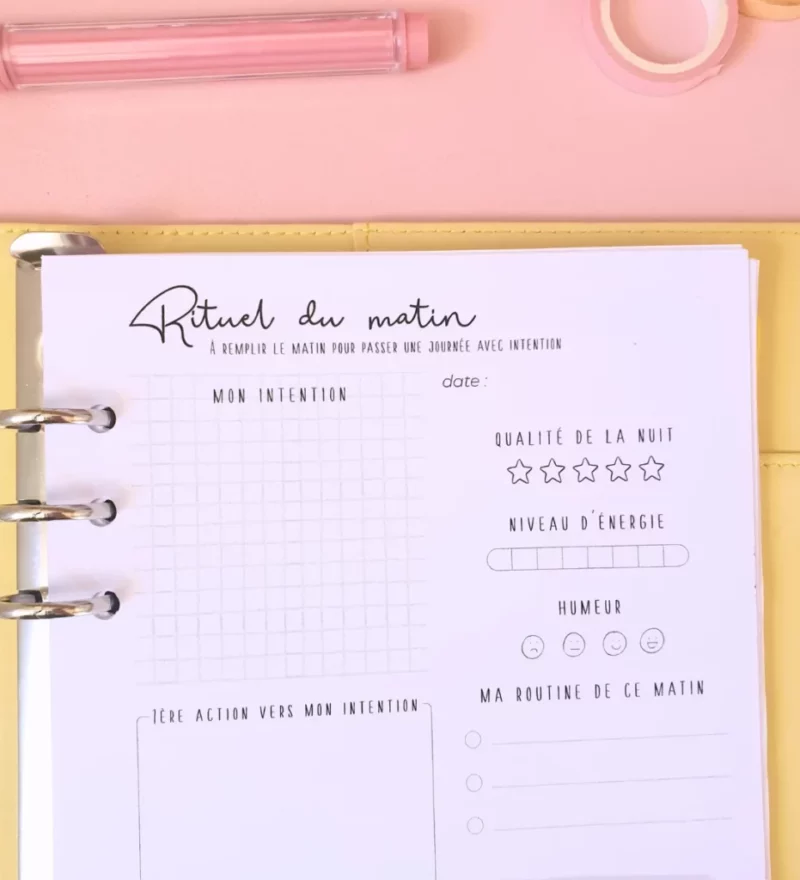 Rituel du matin
À REMPLIR LE MATIN POUR PASSER UNE JOURNÉE AVEC INTENTION
MON INTENTION
date :
QUALITÉ DE LA NUIT
NIVEAU D'ÉNERGIE
HUMEUR
MA ROUTINE DE CE MATIN
1ÈRE ACTION VERS MON INTENTION